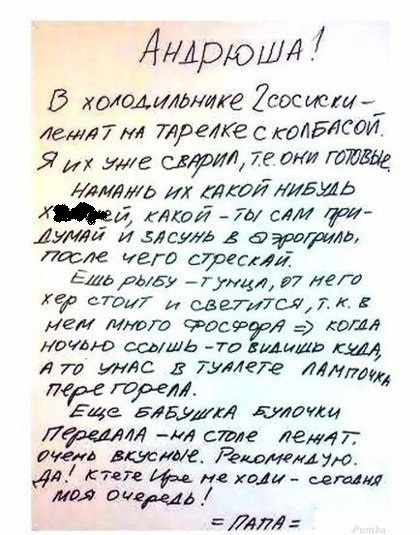 Андрюша!
В холодильнике 2 сосиски –
лежат на тарелке с колбасой.
Я их уже сварил, т.е. они готовые.
Намажь их какой нибудь
х ей, какой – ты сам при-
думай и засунь в аэрогриль,
после чего стрескай.
Ешь рыбу – тунца, от него
хер стоит и светится, т.к. в
нем много фосфора => когда
ночью ссышь – то видишь куда,
а то у нас в туалете лампочка
перегорела.
Еще бабушка булочки
передала – на столе лежат.
очень вкусные. Рекомендую.
Да! к тете Ире не ходи – сегодня
моя очередь!
= ПАПА =
Pumba